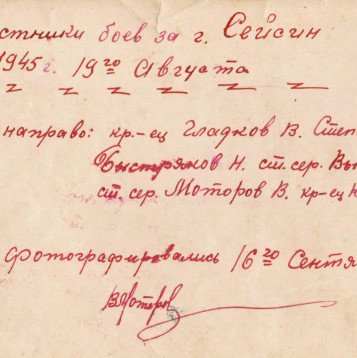 стники боев за г. Сейсин
1945 г. 19го Августа
направо: кр-ец Гладков В. Степ
Быстряков Н. ст. сер. Вы
ст. сер. Моторов В. кр-ец Н
Фотографировались 16го Сентя
ВМоторов